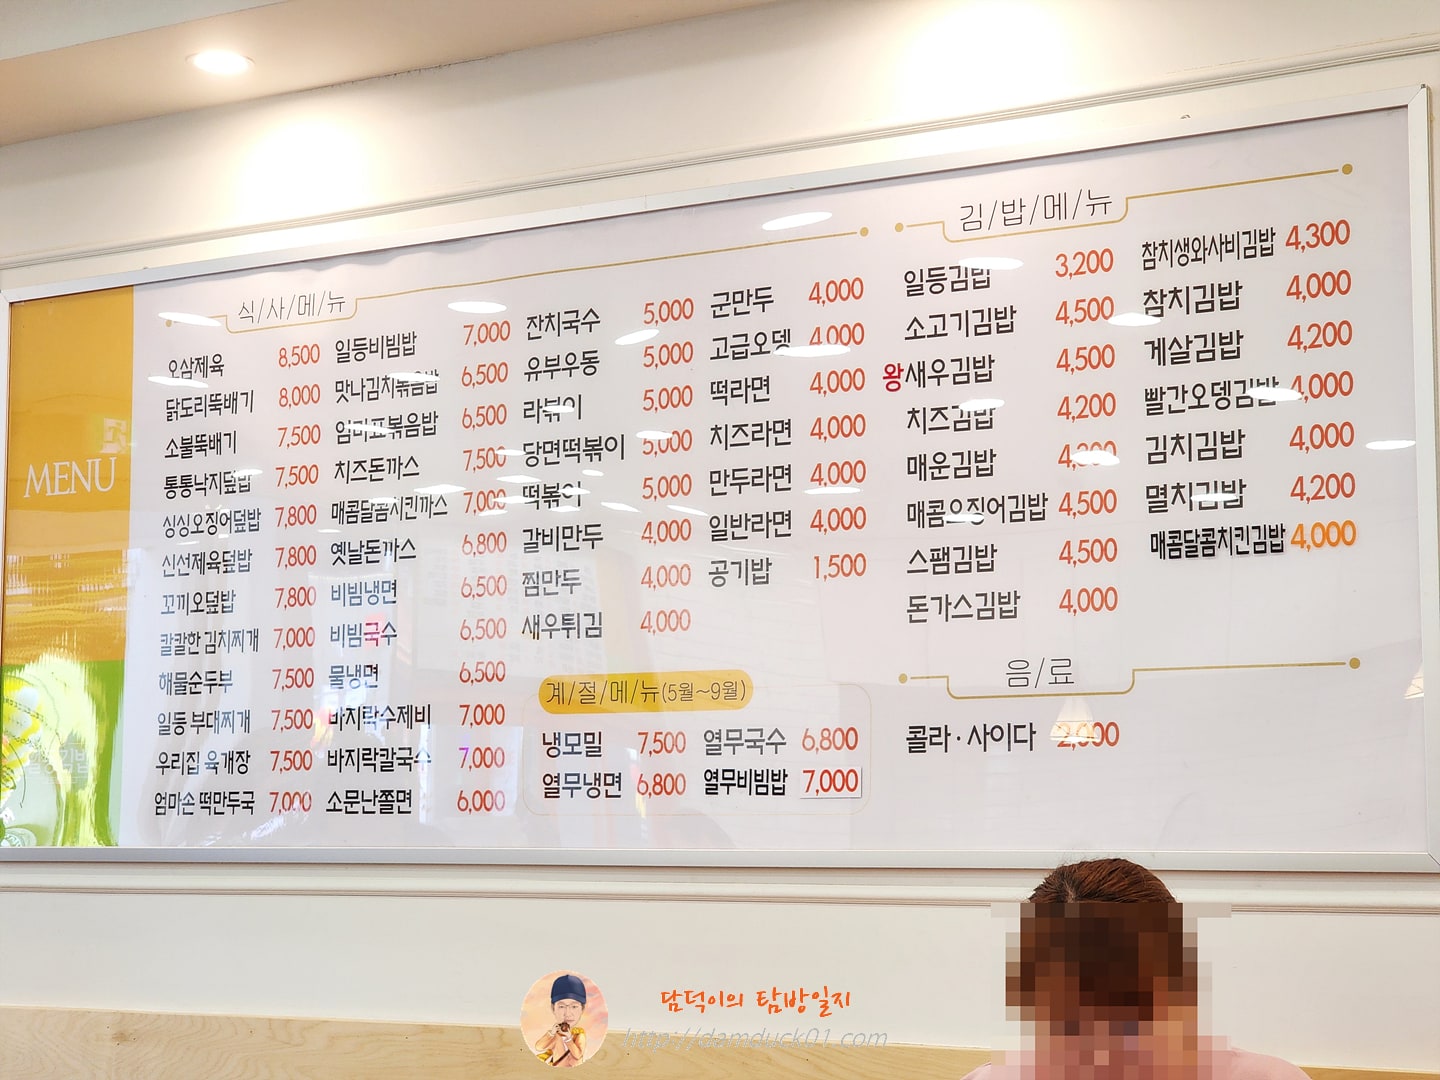 MENU
식/사/메/뉴
오삼제육 8,500
닭도리뚝배기 8,000
소불뚝배기 7,500
통통낙지덮밥 7,500
싱싱오징어덮밥 7,800
신선제육덮밥 7,800
꼬끼오덮밥 7,800
칼칼한 김치찌개 7,000
해물순두부 7,500
일등 부대찌개 7,500
우리집 육개장 7,500
엄마손 떡만두국 7,000
일등비빔밥 7,000
맛나김치볶음밥 6,500
엄마표볶음밥 6,500
치즈돈까스 7,500
매콤달콤치킨까스 7,000
옛날돈까스 6,800
비빔냉면 6,500
비빔국수 6,500
물냉면 6,500
바지락수제비 7,000
바지락칼국수 7,000
소문난쫄면 6,000
잔치국수 5,000
유부우동 5,000
라볶이 5,000
당면떡볶이 5,000
떡볶이 5,000
갈비만두 4,000
찜만두 4,000
새우튀김 4,000
군만두 4,000
고급오뎅 4,000
떡라면 4,000
치즈라면 4,000
만두라면 4,000
일반라면 4,000
공기밥 1,500
계/절/메/뉴(5월~9월)
냉모밀 7,500 열무국수 6,800
열무냉면 6,800 열무비빔밥 7,000
김/밥/메/뉴
일등김밥 3,200
소고기김밥 4,500
왕새우김밥 4,500
치즈김밥 4,200
매운김밥
매콤오징어김밥 4,500
스팸김밥 4,500
돈가스김밥 4,000
참치생와사비김밥 4,300
참치김밥 4,000
게살김밥 4,200
빨간오뎅김밥 4,000
김치김밥 4,000
멸치김밥 4,200
매콤달콤치킨김밥 4,000
음/료
콜라·사이다 2,000
담덕이의 탐방일지
http://damduck01.com